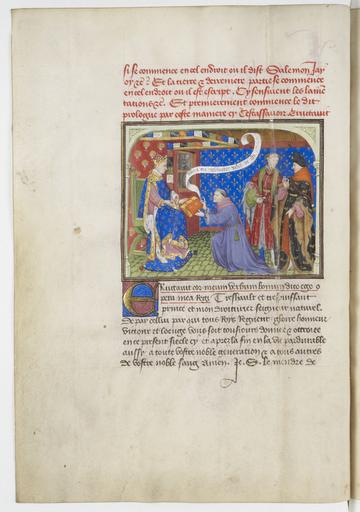 si se commence en cel endroit ou il dist Salemon Jay
Et la tierce & derreniere partie se commence
en cel endroit ou il est escript. Cy sensuivent les lamen
tations &c. Et premierement commence le dit
prologue par ceste maniere cy Cestassavoir Eructavit
Eructavit cor meum verbum bonum dico ego o
pera mea Regi Treshault et trespuissant
prince et mon droiturier seigneur naturel.
De par cellui par qui tous Roys regnent gloire honneur
victoire et vous soit tousiours donnee & ottroiee
en ce present siecle cy et apres la fin en la vie pardurable
aussy a toute vostre noble generation & a tous autres
de vostre noble sang Amen. Je. S. le mendre de